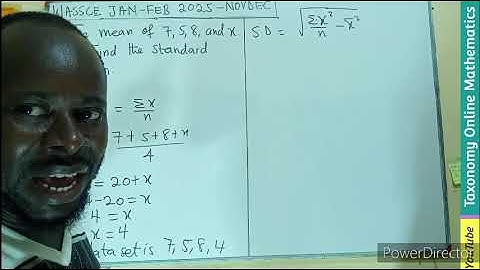 WASSCE JAN-FEB 2025-NOVDEC
mean of 7, 5, 8, and x
find the standard
= Σx/n
7+5+8+x/4
= 20+x
4-20=x
4 = x
x = 4
data set is 7, 5, 8, 4
SD = √Σx²/n - x̄²
Taxonomy Online Mathematics
YouTube
PowerDirector